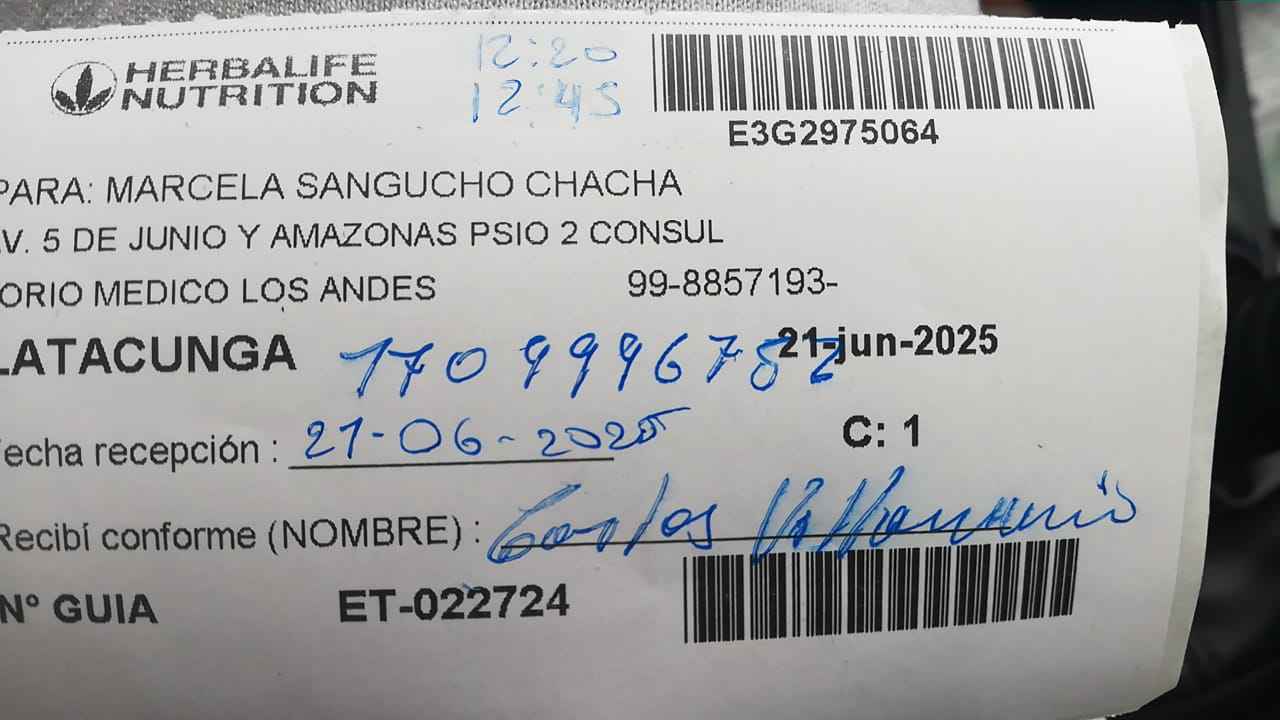 HERBALIFE
NUTRITION
12:20
12:45
E3G2975064
PARA: MARCELA SANGUCHO CHACHA
AV. 5 DE JUNIO Y AMAZONAS PSIO 2 CONSUL
ORIO MEDICO LOS ANDES 99-8857193-
LATACUNGA 1709996782 21-jun-2025
Fecha recepción : 21-06-2025
C: 1
Recibí conforme (NOMBRE) : Carlos
N° GUIA ET-022724